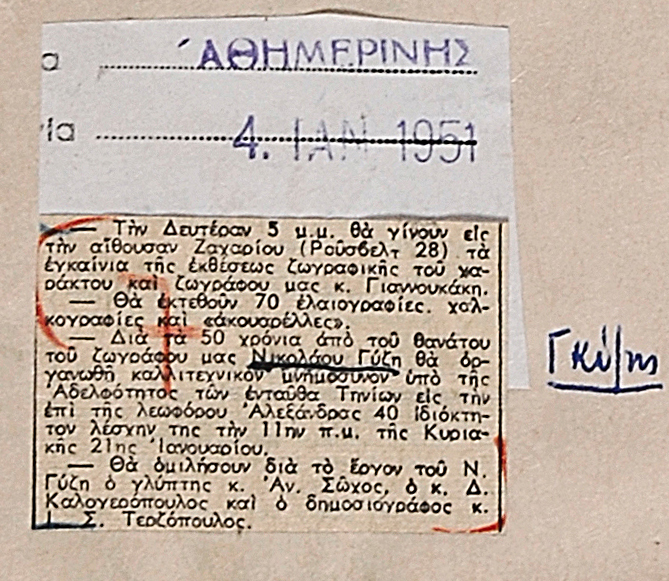 α ΆΘΗΜΕΡΙΝΗΣ
ία 4. ΙΑΝ 1951
— Τὴν Δευτέραν 5 μ.μ. θὰ γίνουν εἰς
τὴν αἴθουσαν Ζαχαρίου (Ροῦσβελτ 28) τὰ
ἐγκαίνια τῆς ἐκθέσεως ζωγραφικῆς τοῦ χα-
ράκτου καὶ ζωγράφου μας κ. Γιαννουκάκη.
— Θὰ ἐκτεθοῦν 70 ἐλαιογραφίες, χαλ-
κογραφίες καὶ «ἀκουαρέλλες».
— Διὰ τὰ 50 χρόνια ἀπὸ τοῦ θανάτου
τοῦ ζωγράφου μας Νικολάου Γύζη θὰ ὀρ-
γανωθῆ καλλιτεχνικὸν μνημόσυνον ὑπὸ τῆς
Ἀδελφότητος τῶν ἐνταῦθα Τηνίων εἰς τὴν
ἐπὶ τῆς λεωφόρου Ἀλεξάνδρας 40 ἰδιόκτη-
τον λέσχην της τὴν 11ην π.μ. τῆς Κυρια-
κῆς 21ης Ἰανουαρίου.
— Θὰ ὁμιλήσουν διὰ τὸ ἔργον τοῦ Ν.
Γύζη ὁ γλύπτης κ. Ἀν. Σῶχος, ὁ κ. Δ.
Καλογερόπουλος καὶ ὁ δημοσιογράφος κ.
Σ. Τερζόπουλος.
Γκύζης